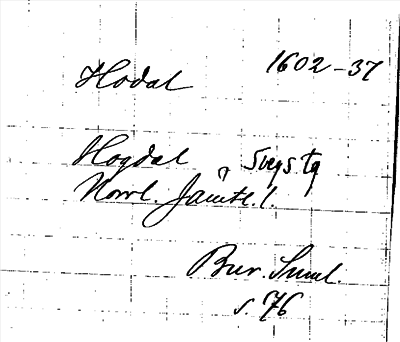 Hodal 1602-37
Hogdal Svegs tg
Norrl. Jämtl. l.
Bur. Suml.
s. 76